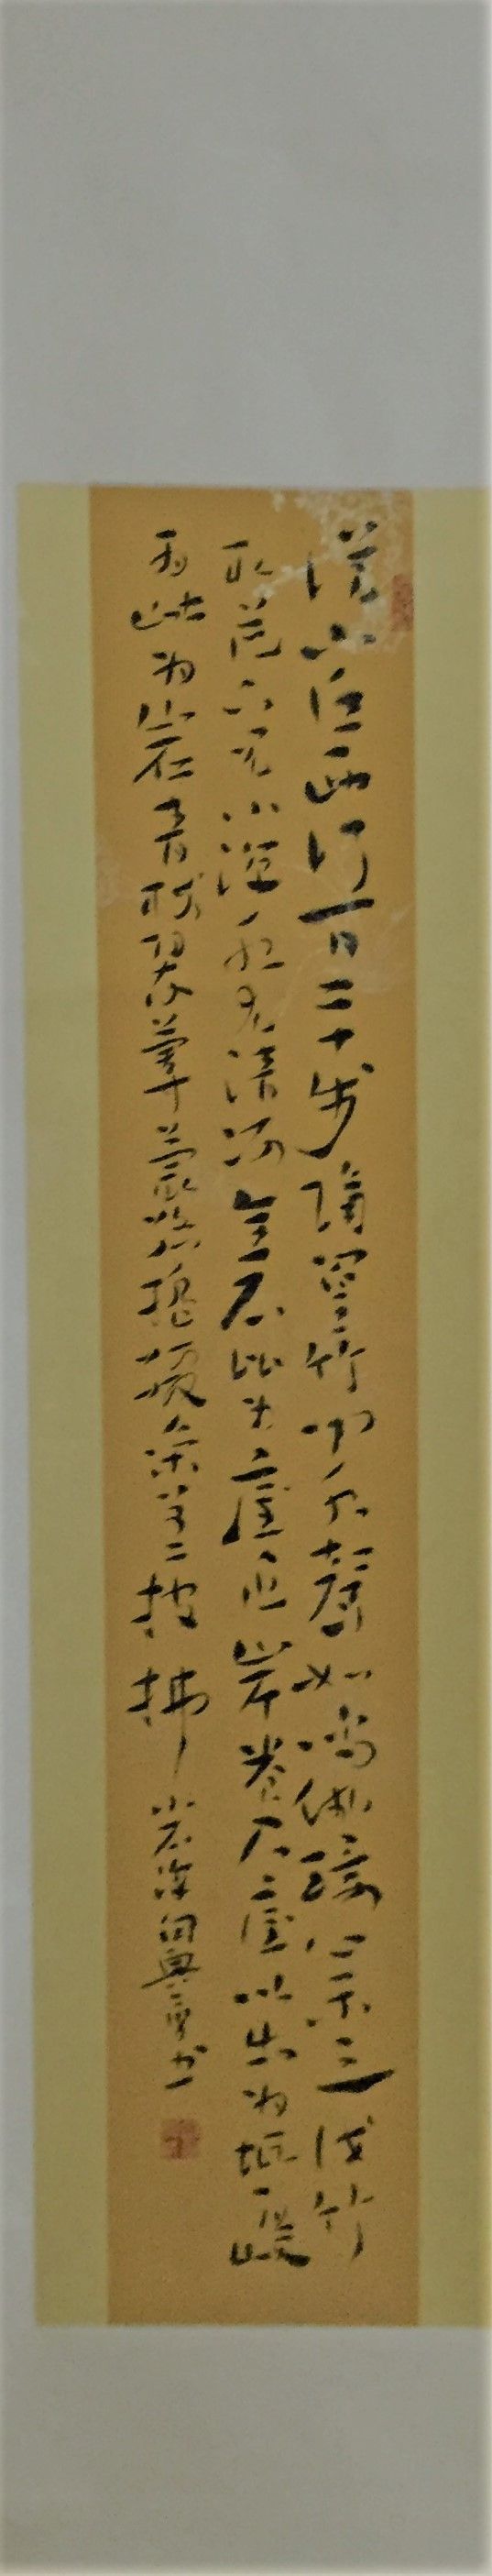 從小丘西行百二十步隔篁竹聞水聲如鳴佩環心樂之伐竹
取道下見小潭水尤清冽全石以为底近岸卷石底以出为坻为嶼
为嵁为岩青樹翠蔓蒙絡搖綴參差披拂 小石潭 书